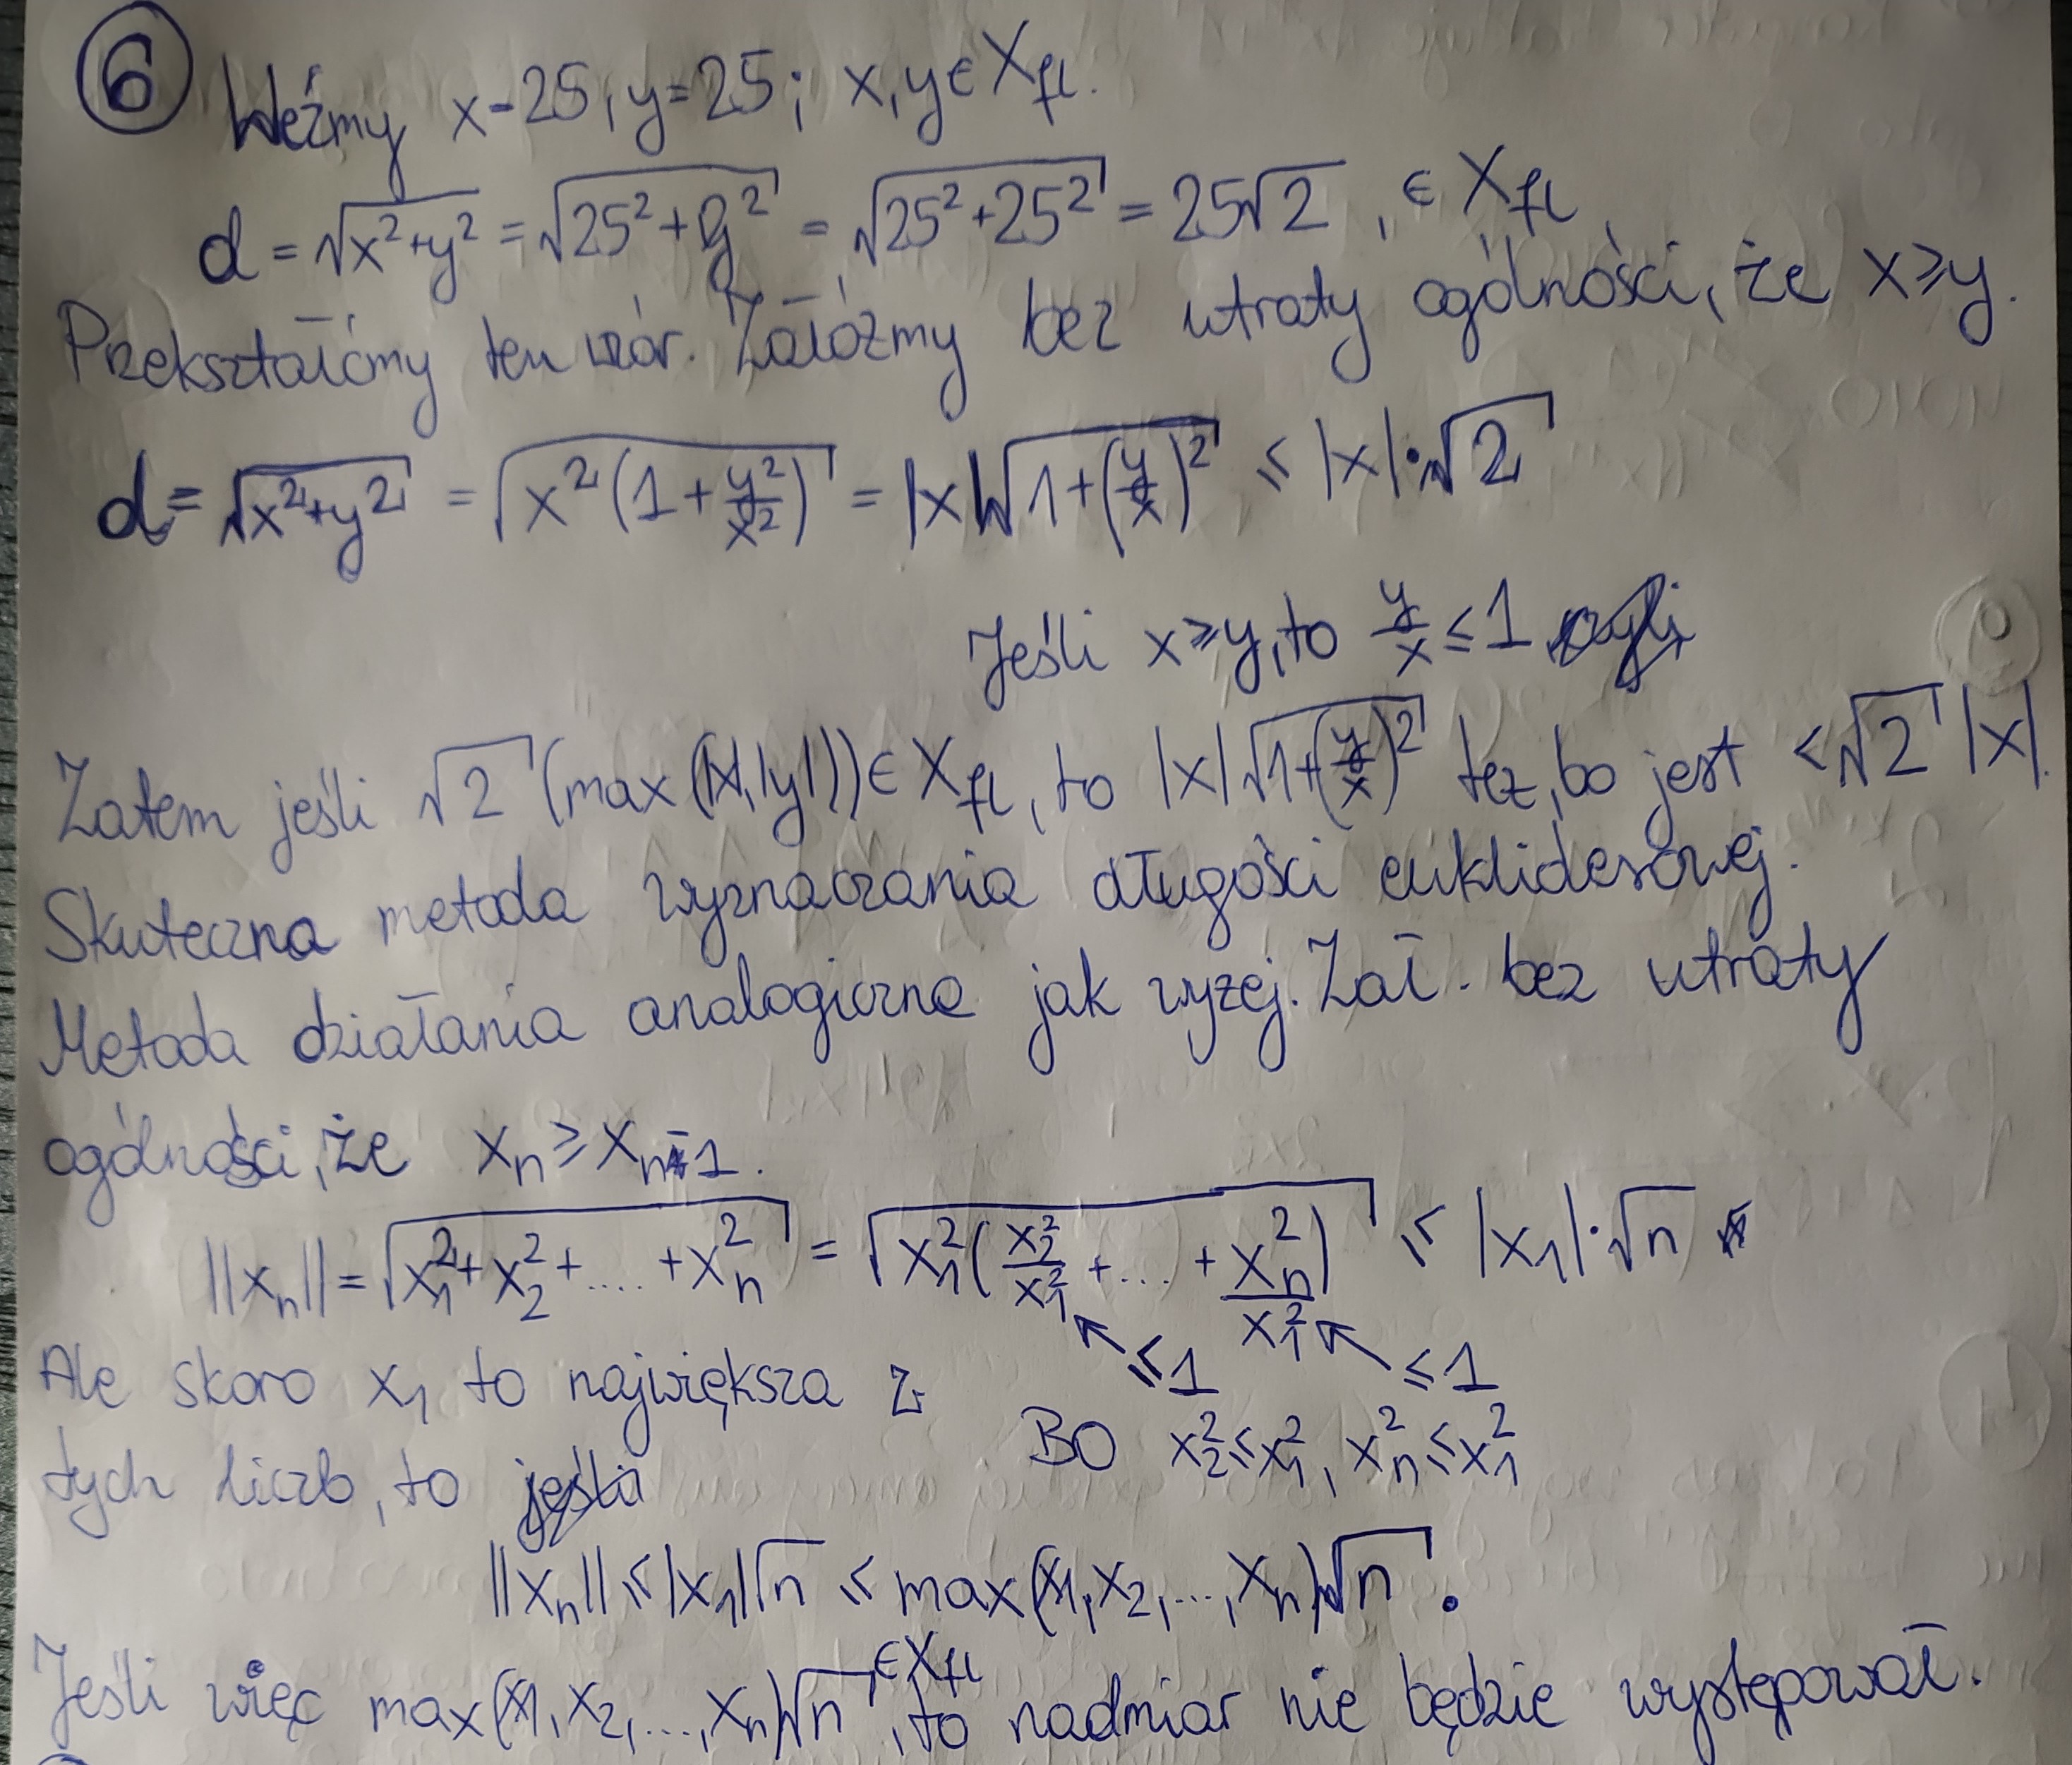 6 Weźmy x=25, y=25; x,y∈X_fl.
d = √(x²+y²) = √(25²+y²) = √(25²+25²) = 25√2, ∈ X_fl
Przekształćmy ten wzór. Załóżmy bez utraty ogólności, że x≥y.
d = √(x²+y²) = √(x²(1+y²/x²)) = |x|√(1+(y/x)²) ≤ |x|·√2
Jeśli x≥y, to y/x ≤ 1
Zatem jeśli √2(max(|x|,|y|))∈X_fl, to |x|√(1+(y/x)²) też, bo jest <√2|x|.
Skuteczna metoda wyznaczania długości euklidesowej.
Metoda działania analogiczna jak wyżej. Zał. bez utraty
ogólności, że xₙ≥xₙ₋₁.
||xₙ|| = √(x₁²+x₂²+....+xₙ²) = √(x₁²(x₂²/x₁²+...+xₙ²/x₁²)) ≤ |x₁|·√n
≤1 ≤1
Ale skoro x₁ to największa z
BO x₂²≤x₁², xₙ²≤x₁²
tych liczb, to
||xₙ|| ≤ |x₁|√n ≤ max(x₁,x₂,...,xₙ)√n.
Jeśli więc max(x₁,x₂,...,xₙ)√n ∈X_fl, to nadmiar nie będzie występował.